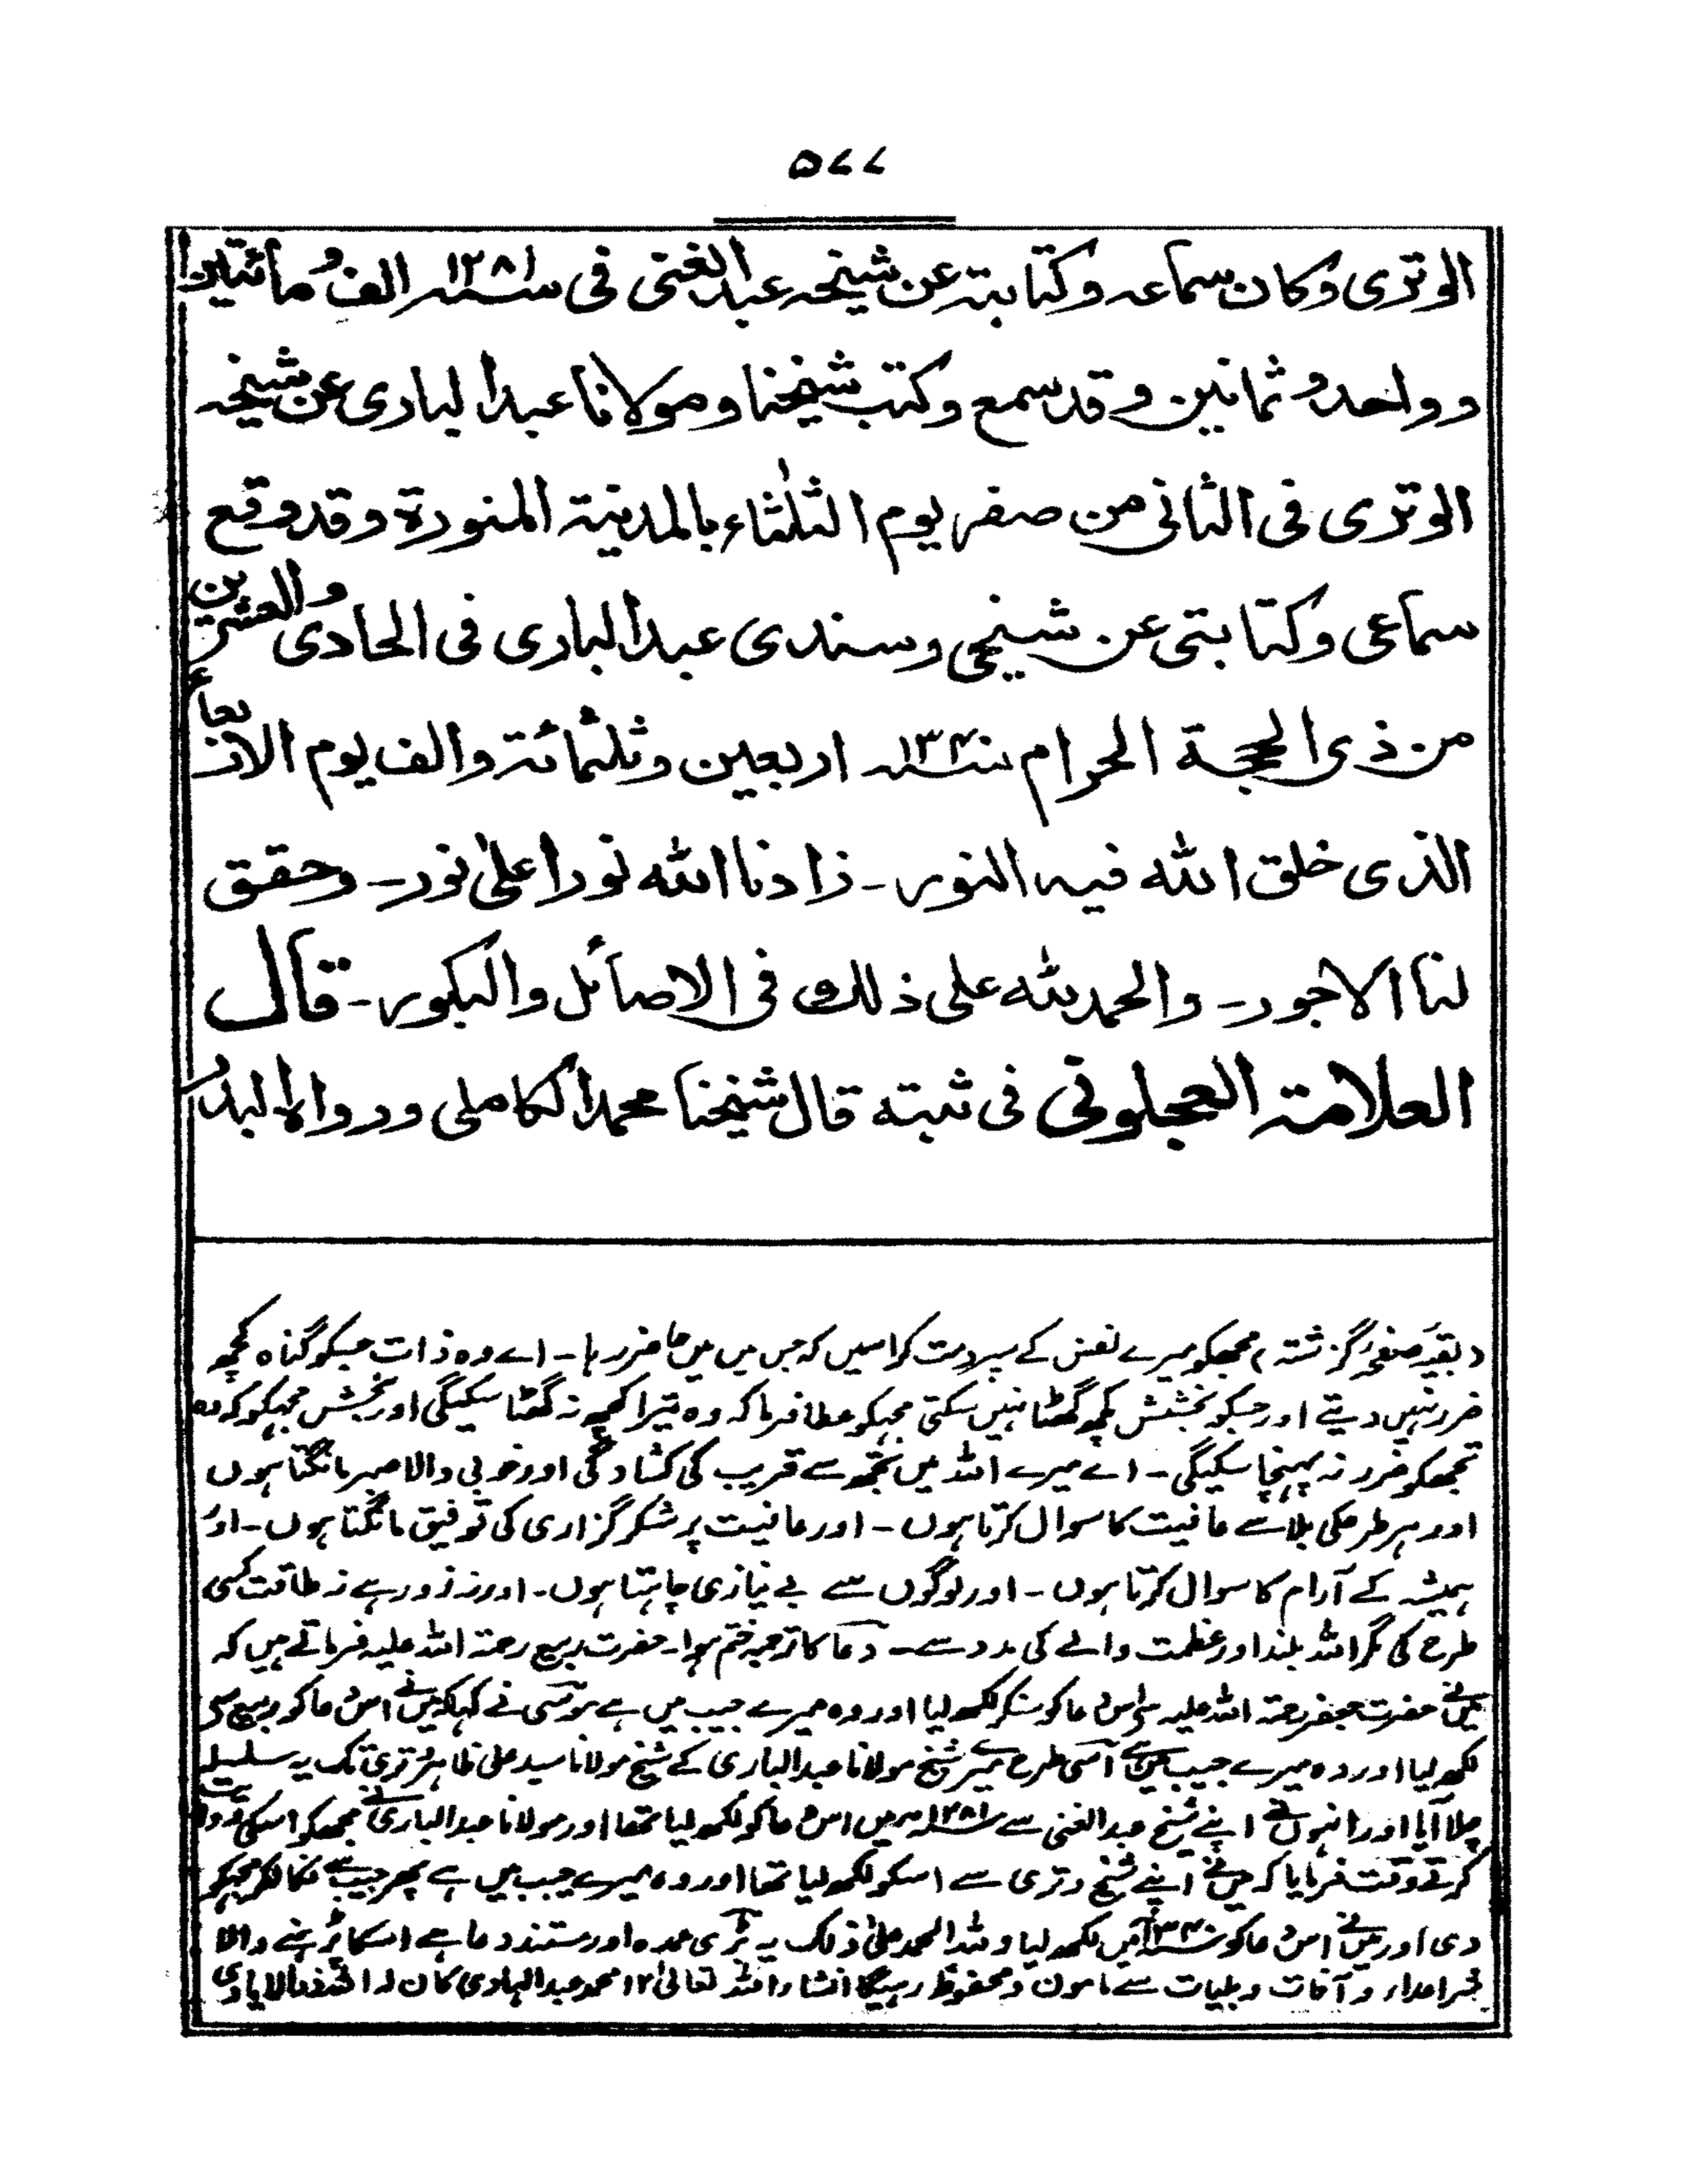 ۵۷۷
الوتری وکان سماعہ وکتابتہ عن شیخہ عبدالغنی فی سنہ ۱۲۸۱ الف ومائتین
وواحد وثمانین وقد سمع وکتب شیخنا ومولانا عبدالباری عن شیخہ
الوتری فی الثانی من صفر یوم الثلٰثاء بالمدینۃ المنورۃ وقد وقع
سماعی وکتابتی عن شیخی وسندی عبدالباری فی الحادی والعشرین
من ذی الحجۃ الحرام سنہ ۱۳۴۰ اربعین وثلثمائۃ والف یوم الاربعاء
الذی خلق اللہ فیہ النور۔ زادنا اللہ نورا علیٰ نور۔ وحقق
لنا الاجور۔ والحمد للہ علی ذلک فی الاصائل والبکور۔ قال
العلامۃ العجلونی فی ثبتہ قال شیخنا محمد الکاملی ورواہ البدر
(بقیہ صفحہ گزشتہ) مجھکو میرے نفس کے سپرد مت کر اسمیں کہ جس میں میں حاضر رہا۔ اے وہ ذات جسکو گناہ کچھ
ضرر نہیں دیتے اور جسکو بخشش کچھ گھٹا نہیں سکتی مجہکو عطا فرما کہ وہ تیرا کچھ نہ گھٹا سکیگی اور بخش مجہکو کہ وہ
تجھکو ضرر نہ پہنچا سکیگی۔ اے میرے اللہ میں تجھ سے قریب کی کشادگی اور خوبی والا صبر مانگتا ہوں
اور ہر طرحکی بلا سے عافیت کا سوال کرتا ہوں۔ اور عافیت پر شکر گزاری کی توفیق مانگتا ہوں۔ اور
ہمیشہ کے آرام کا سوال کرتا ہوں۔ اور لوگوں سے بے نیازی چاہتا ہوں۔ اور نہ زور ہے نہ طاقت کسی
طرح کی مگر اللہ بلند اور عظمت والے کی مدد سے۔ دعا کا ترجمہ ختم ہوا۔ حضرت ربیع رحمۃ اللہ علیہ فرماتے ہیں کہ
میں نے حضرت جعفر رحمۃ اللہ علیہ سے اس دعا کو سنکر لکھ لیا اور وہ میرے جیب میں ہے موسی نے کہا کہ میں نے اس دعا کو ربیع سے
لکھ لیا اور وہ میرے جیب میں ہے اسی طرح میرے شیخ مولانا عبدالباری کے شیخ مولانا سید علی ظاہر وتری تک یہ سلسلہ
چلا آیا اور انہوں نے اپنے شیخ عبدالغنی سے سنہ ۱۲۸۱ میں اس دعا کو لکھ لیا تھا اور مولانا عبدالباری نے مجھکو اسکی
کرتے وقت فرمایا کہ میں نے اپنے شیخ وتری سے اسکو لکھ لیا تھا اور وہ میرے جیب میں ہے پھر جیب سے نکالکر مجہکو
دی اور میں نے اس دعا کو سنہ ۱۳۴۰ میں لکھ لیا وللہ الحمد علیٰ ذلک یہ بڑی عمدہ اور مستند دعا ہے اسکا پڑہنے والا
شر اعداء و آفات و بلیات سے مامون و محفوظ رہیگا انشاء اللہ تعالیٰ ۱۲ محمد عبدالہادی کان لہ اللہ ذو الایادی